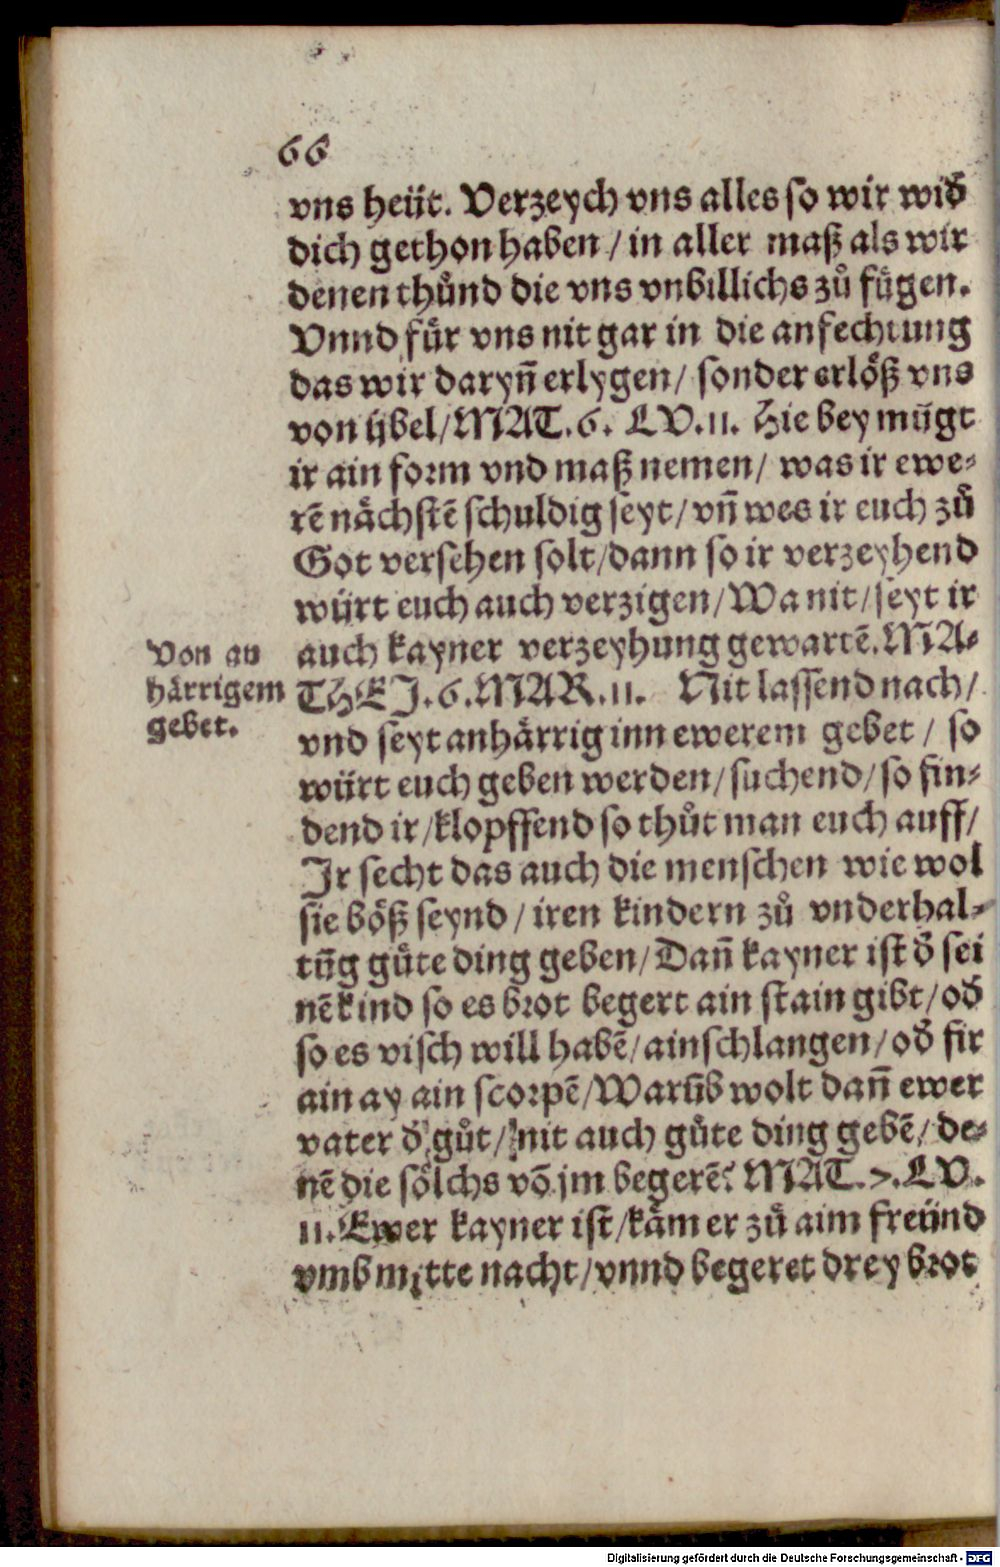 66
vns heüt. Verzeych vns alles so wir wid̕
dich gethon haben / in aller maß als wir
denen thůnd die vns vnbillichs zů fügen.
Vnnd für vns nit gar in die anfechtung
das wir daryñ erlygen / sonder erlöß vns
von übel / MAT. 6. LV. 11. Hie bey mügt
ir ain form vnd maß nemen / was ir ewe⸗
rē nächstē schuldig seyt / vñ wes ir euch zů
Got versehen solt / dann so ir verzeyhend
würt euch auch verzigen / Wa nit / seyt ir
auch kayner verzeyhung gewartē. MA⸗
THEJ. 6. MAR. 11. Nit lassend nach /
vnd seyt anhärrig inn ewerem gebet / so
würt euch geben werden / suchend / so fin⸗
dend ir / klopffend so thůt man euch auff /
Jr secht das auch die menschen wie wol
sie böß seynd / iren kindern zů vnderhal⸗
tūg gůte ding geben / Dañ kayner ist d̕ sei
nē kind so es brot begert ain stain gibt / od̕
so es visch will habē / ain schlangen / od̕ fir
ain ay ain scorpē / Warūb wolt dañ ewer
vater d̕ gůt / nit auch gůte ding gebē / de⸗
nē die sölchs vō jm begerē? MAT. 7. LV.
11. Ewer kayner ist / käm er zů aim freünd
vmb mitte nacht / vnnd begeret drey brot
Von an
härrigem
gebet.
Digitalisierung gefördert durch die Deutsche Forschungsgemeinschaft - DFG